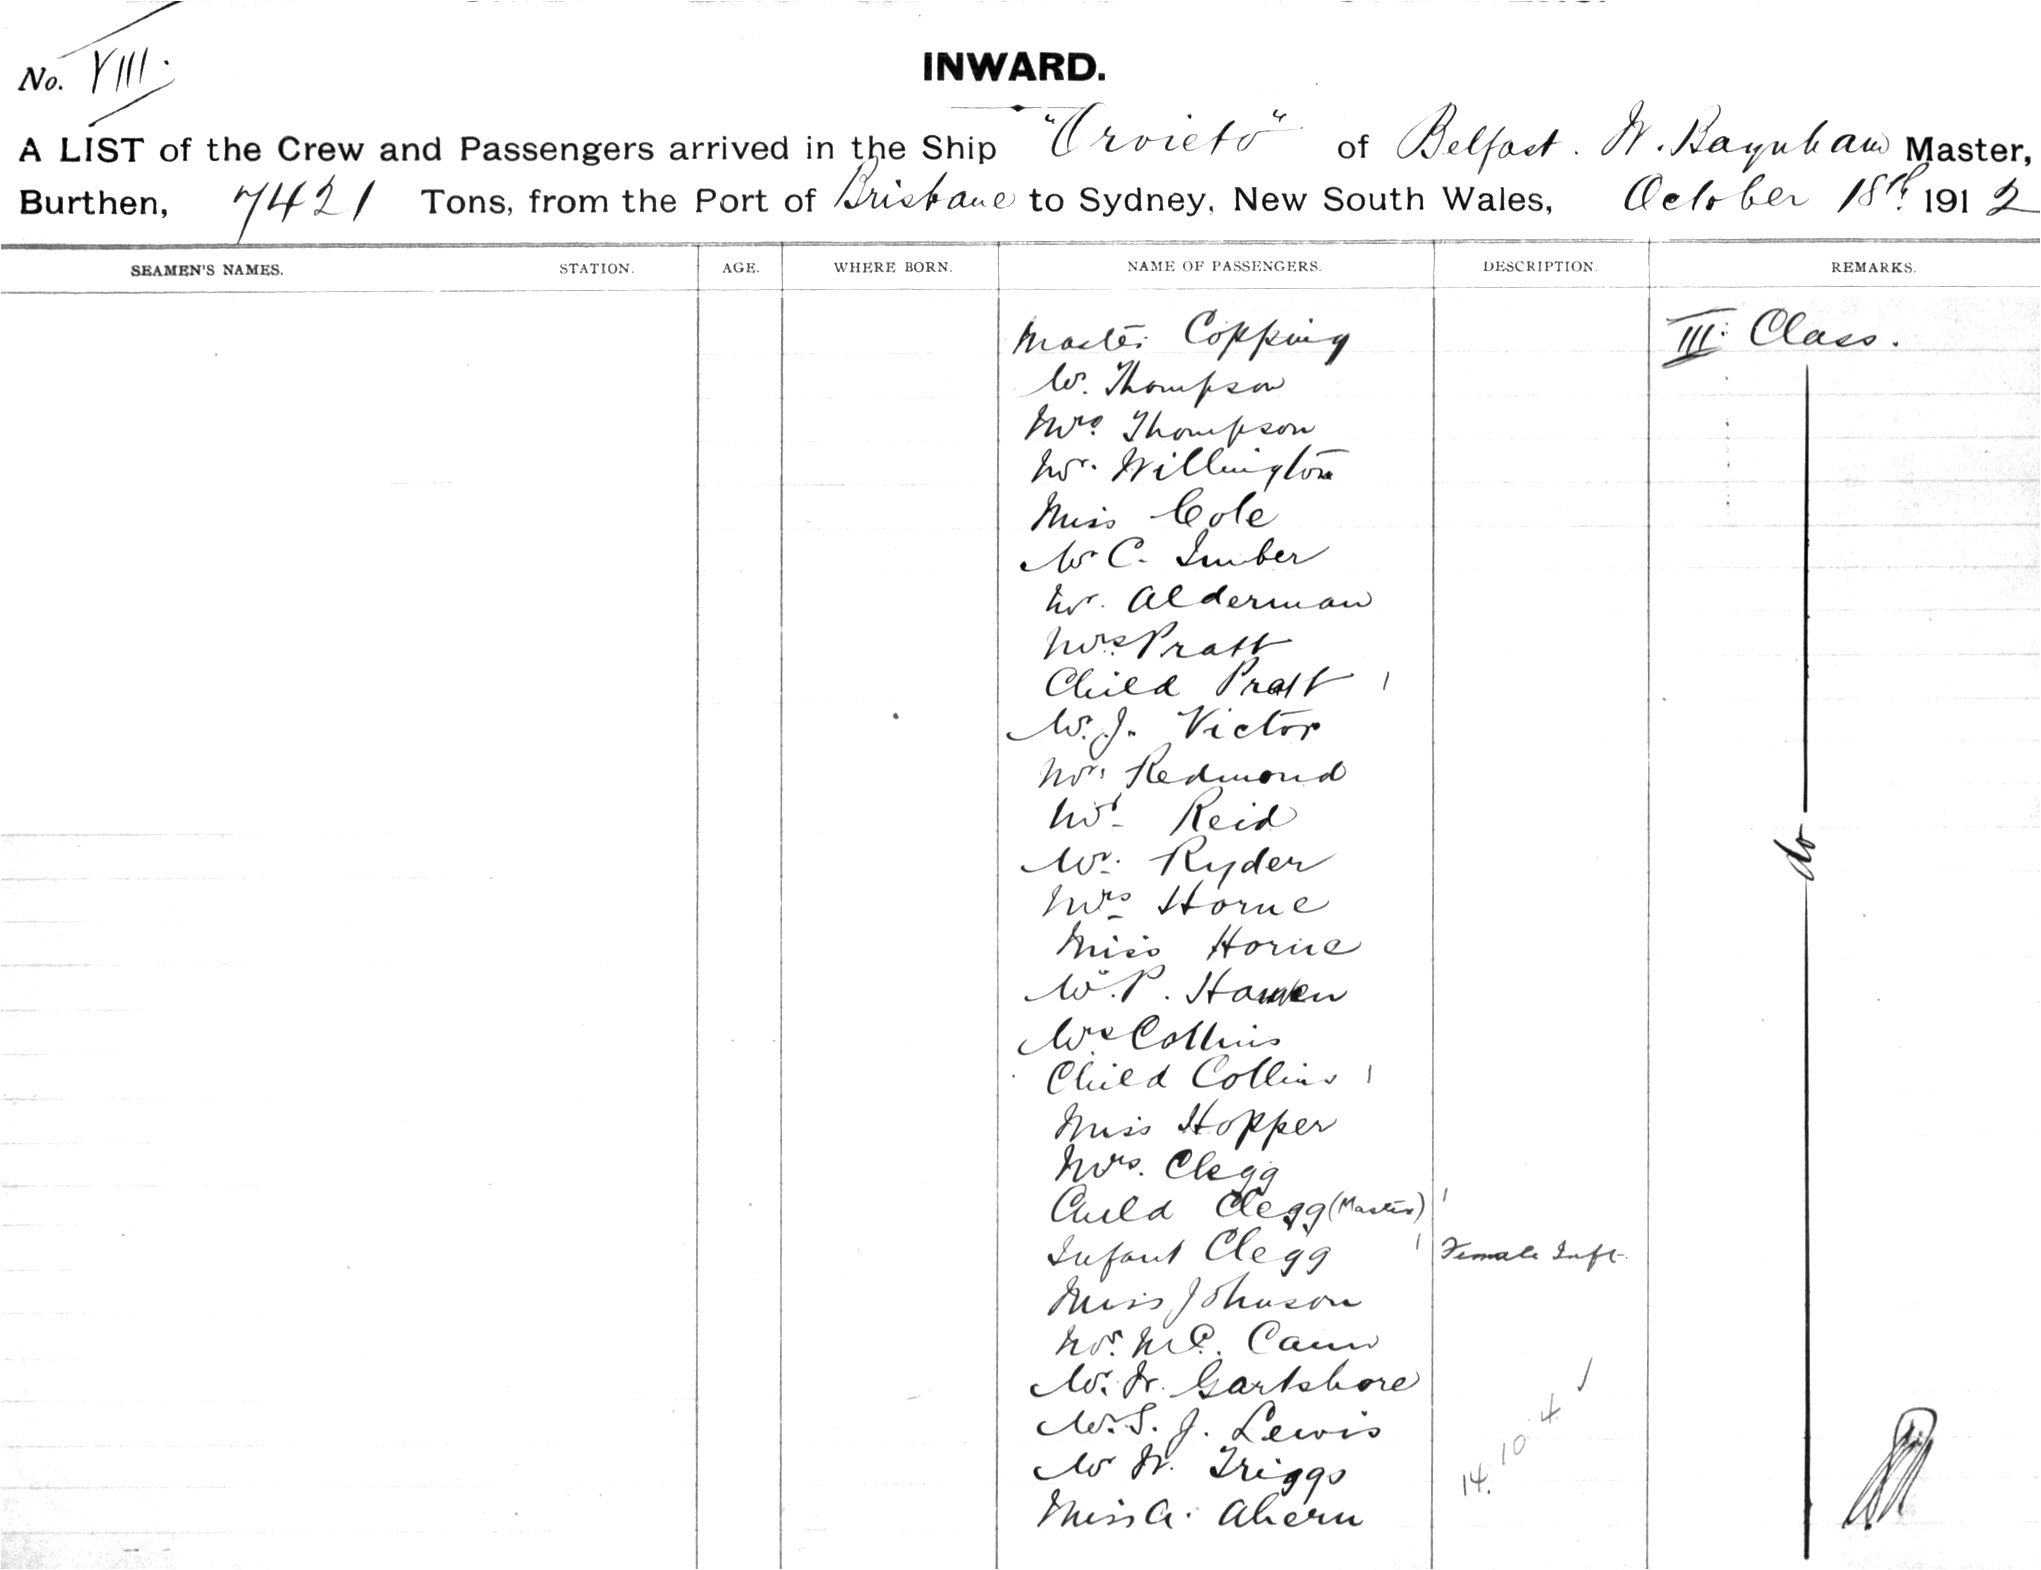 No. VIII.
INWARD.
A LIST of the Crew and Passengers arrived in the Ship "Orvieto" of Belfast. W. Baynham Master,
Burthen, 7421 Tons, from the Port of Brisbane to Sydney, New South Wales, October 18th 1912
SEAMEN'S NAMES. STATION. AGE. WHERE BORN. NAME OF PASSENGERS. DESCRIPTION. REMARKS.
Master Copping III: Class.
Mr. Thompson
Mrs. Thompson
Mr. Willington
Miss Cole
Mr C. Imber
Mr. Alderman
Mrs. Pratt
Child Pratt 1
Mr. J. Victor
Redmond
Reid
do
Mr. Ryder
Mrs Horne
Miss Horne
Mr. P.
Mrs Collins
Child Collins 1
Miss Hopper
Mrs. Clegg
Child Clegg (Master) 1
Infant Clegg 1 Female Inft.
Miss Johnson
Mr. Mc. Cann
Mr. W. Gartshore
Mr. S. J. Lewis
Mr W. Triggs
14. 10 4
Miss A. Ahern